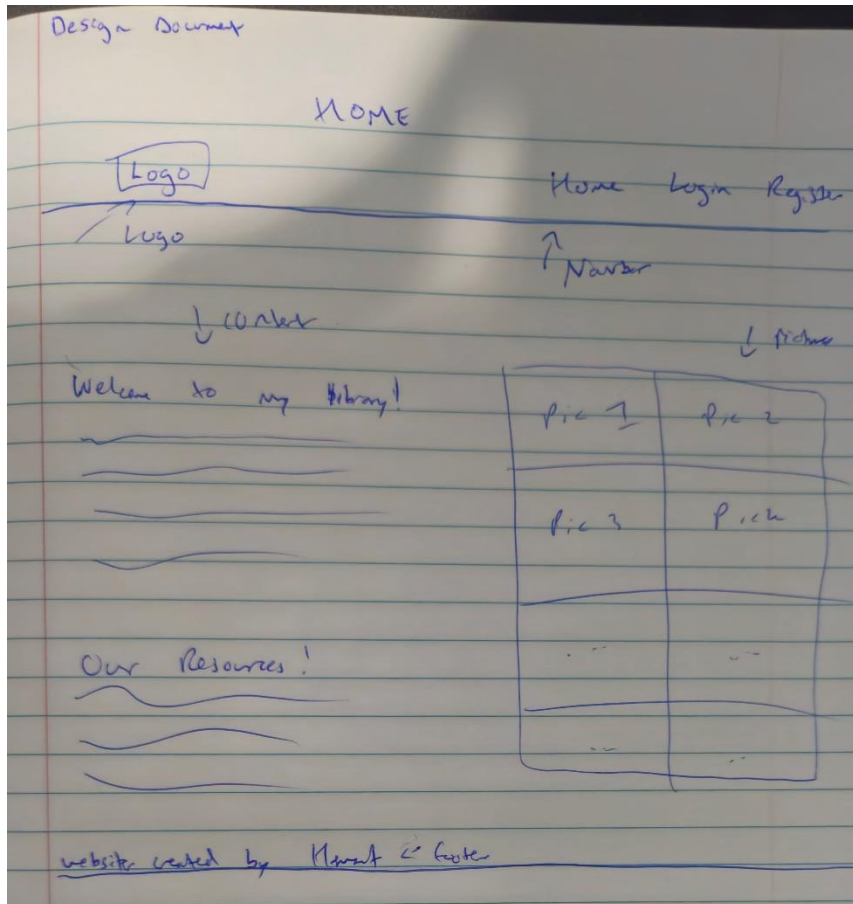 Design Document
HOME
Logo
Home Login Register
Logo
Navbar
content
Pictures
Welcome to my library!
Pic 1 Pic 2
Pic 3 Pic 4
Our Resources!
website created by Hemant ← footer